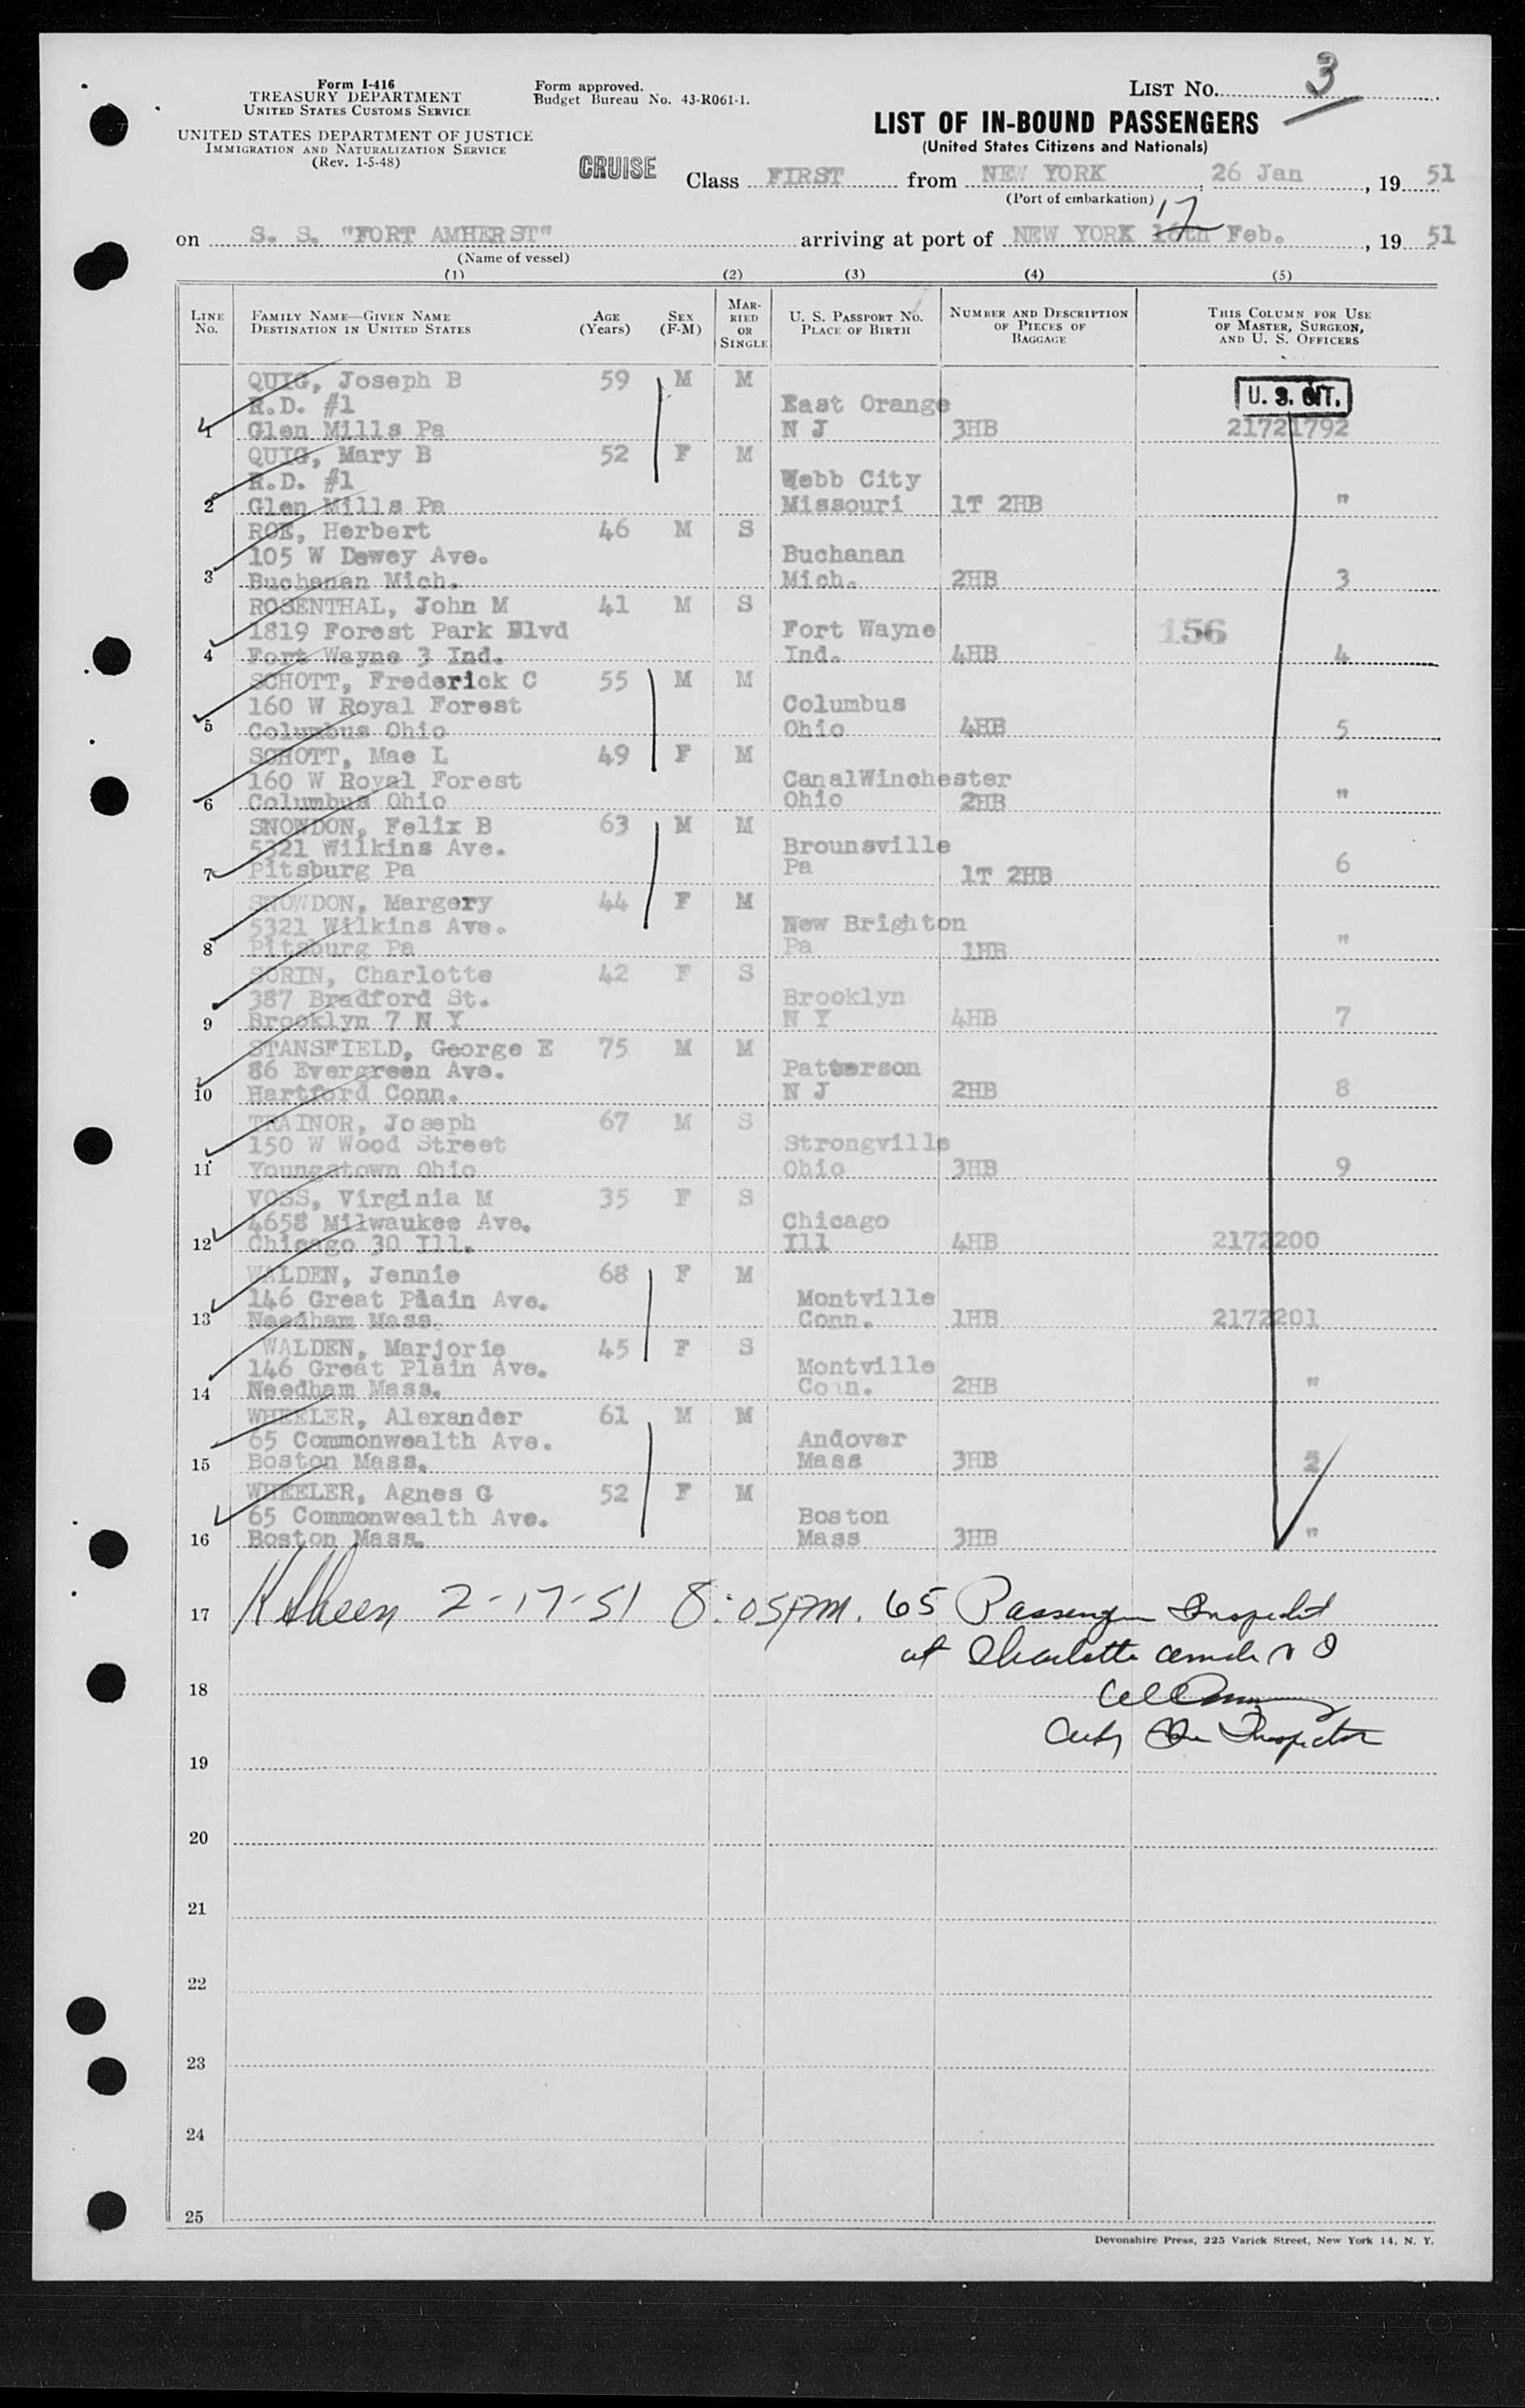 Form I-416
TREASURY DEPARTMENT
UNITED STATES CUSTOMS SERVICE
UNITED STATES DEPARTMENT OF JUSTICE
IMMIGRATION AND NATURALIZATION SERVICE
(Rev. 1-5-48)
Form approved.
Budget Bureau No. 43-R061-1.
LIST NO. 3
LIST OF IN-BOUND PASSENGERS
(United States Citizens and Nationals)
CRUISE Class FIRST from NEW YORK, 26 Jan, 19 51
(Port of embarkation)
17
on S. S. "FORT AMHERST" arriving at port of NEW YORK 16th Feb., 19 51
(Name of vessel)
(1) (2) (3) (4) (5)
LINE No. FAMILY NAME—GIVEN NAME DESTINATION IN UNITED STATES AGE (Years) SEX (F-M) MARRIED OR SINGLE U. S. PASSPORT NO. PLACE OF BIRTH NUMBER AND DESCRIPTION OF PIECES OF BAGGAGE THIS COLUMN FOR USE OF MASTER, SURGEON, AND U. S. OFFICERS
QUIG, Joseph B 59 M M
R.D. #1 East Orange U. S. CIT.
1 Glen Mills Pa N J 3HB 21721792
QUIG, Mary B 52 F M
R.D. #1 Webb City
2 Glen Mills Pa Missouri 1T 2HB "
ROE, Herbert 46 M S
105 W Dewey Ave. Buchanan
3 Buchanan Mich. Mich. 2HB 3
ROSENTHAL, John M 41 M S
1819 Forest Park Blvd Fort Wayne 156
4 Fort Wayne 3 Ind. Ind. 4HB 4
SCHOTT, Frederick C 55 M M
160 W Royal Forest Columbus
5 Columbus Ohio Ohio 4HB 5
SCHOTT, Mae L 49 F M
160 W Royal Forest CanalWinchester
6 Columbus Ohio Ohio 2HB "
SNOWDON, Felix B 63 M M
5321 Wilkins Ave. Brounsville
7 Pitsburg Pa Pa 1T 2HB 6
SNOWDON, Margery 44 F M
5321 Wilkins Ave. New Brighton
8 Pitsburg Pa Pa 1HB "
SORIN, Charlotte 42 F S
387 Bradford St. Brooklyn
9 Brooklyn 7 N Y N Y 4HB 7
STANSFIELD, George E 75 M M
86 Evergreen Ave. Patterson
10 Hartford Conn. N J 2HB 8
TRAINOR, Joseph 67 M S
150 W Wood Street Strongville
11 Youngstown Ohio Ohio 3HB 9
VOSS, Virginia M 35 F S
4658 Milwaukee Ave. Chicago
12 Chicago 30 Ill. Ill 4HB 2172200
WALDEN, Jennie 68 F M
146 Great Plain Ave. Montville
13 Needham Mass. Conn. 1HB 2172201
WALDEN, Marjorie 45 F S
146 Great Plain Ave. Montville
14 Needham Mass. Conn. 2HB "
WHEELER, Alexander 61 M M
65 Commonwealth Ave. Andover
15 Boston Mass. Mass 3HB 2
WHEELER, Agnes G 52 F M
65 Commonwealth Ave. Boston
16 Boston Mass. Mass 3HB "
17 2-17-51 8:05PM. 65 Passenger Inspected
at Charlotte
18
Inspector
19
20
21
22
23
24
25
Devonshire Press, 225 Varick Street, New York 14, N. Y.